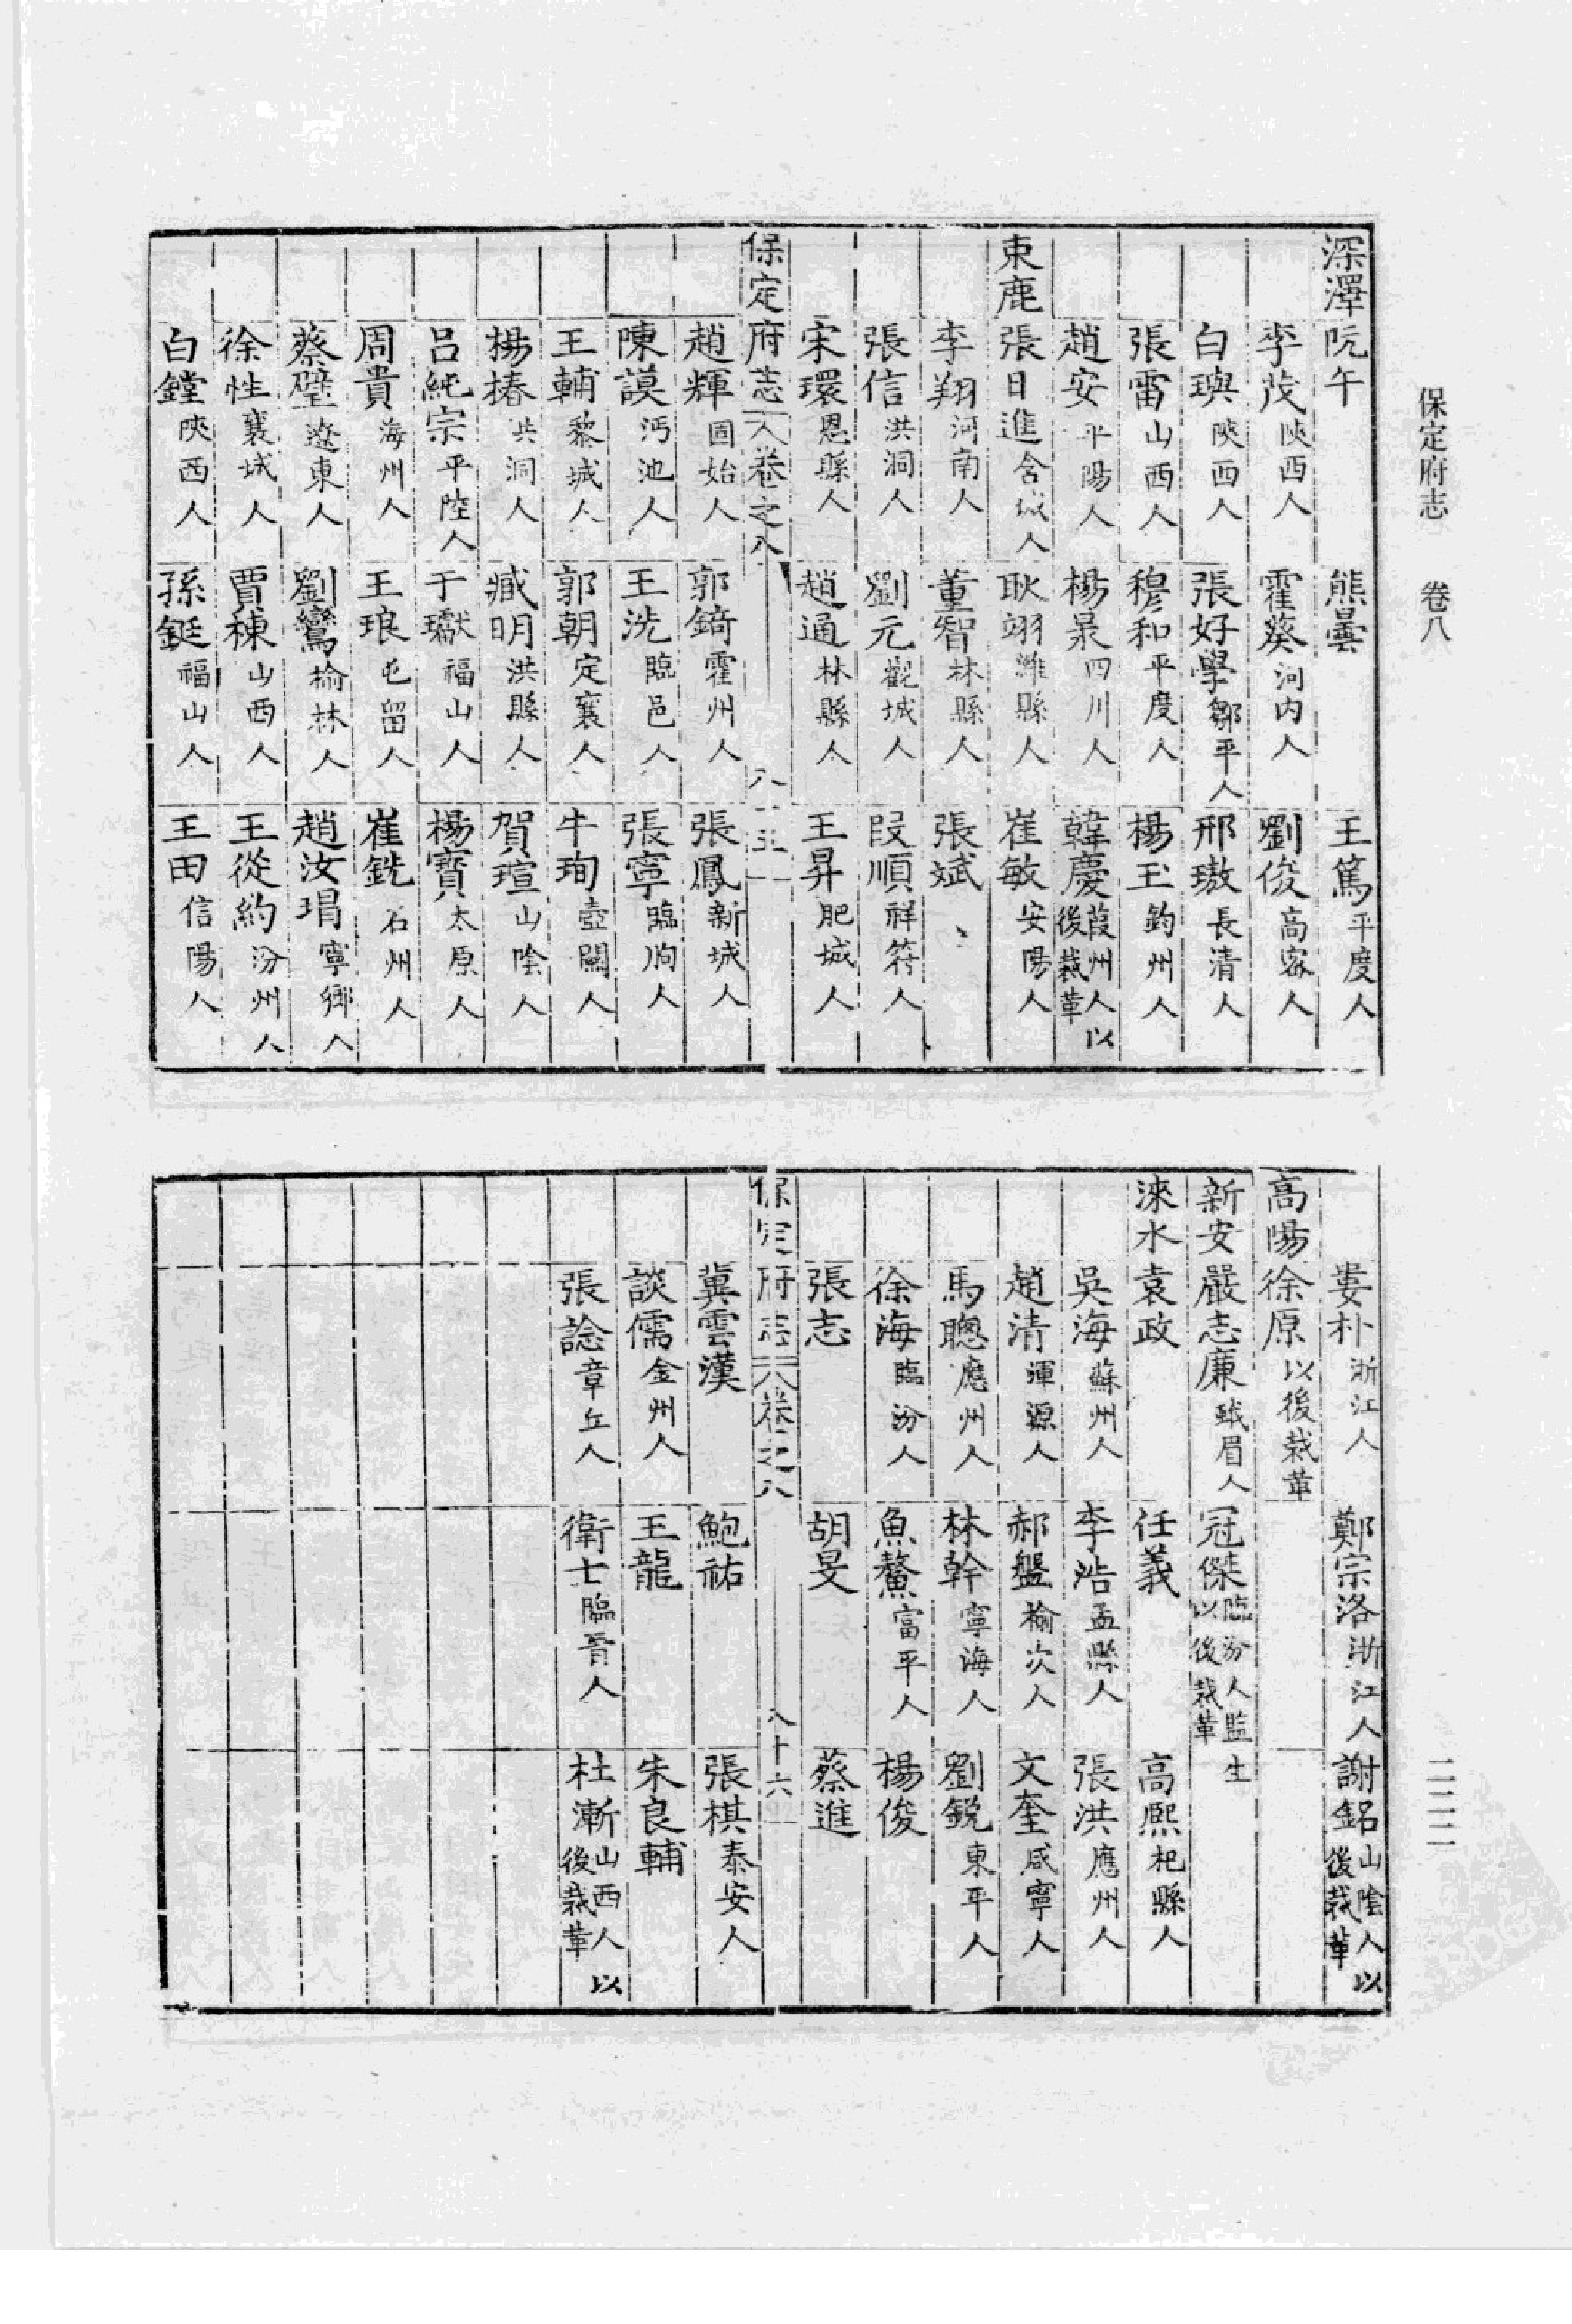 保定府志 卷八
深澤 阮午 熊曇 王篤平度人
李茂陝西人 霍葵河内人 劉俊高密人
白璵陝西人 張好學鄒平人 邢璈長清人
張雷山西人 穆和平度人 楊玉鈞州人
趙安平陽人 楊景四川人 韓慶葭州人以後裁革
東鹿 張日進含城人 耿翊濰縣人 崔敏安陽人
李翔河南人 董智林縣人 張斌
張信洪洞人 劉元觀城人 段順祥符人
宋環恩縣人 趙通林縣人 王昇肥城人
保定府志 卷之八 八十五
趙輝固始人 郭錡霍州人 張鳳新城人
陳謨沔池人 王洗臨邑人 張寧臨朐人
王輔黎城人 郭朝定襄人 牛珣壺關人
楊椿洪洞人 臧明洪縣人 賀瑄山陰人
呂純宗平陸人 于獻福山人 楊寶太原人
周貴海州人 王琅屯留人 崔銑石州人
蔡璧遼東人 劉鸞榆林人 趙汝瑁寧鄉人
徐性襄城人 賈棟山西人 王從約汾州人
白鏜陝西人 孫鋌福山人 王田信陽人
婁朴浙江人 鄭宗洛浙江人 謝銘山陰人以後裁革
高陽 徐原以後裁革
新安 嚴志廉峨眉人 冦傑臨汾人監生以後裁革
淶水 袁政 任義 高熙杞縣人
吳海蘇州人 李浩孟縣人 張洪應州人
趙清渾源人 郝盤榆次人 文奎咸寧人
馬聰應州人 林幹寧海人 劉銳東平人
徐海臨汾人 魚鰲富平人 楊俊
張志 胡旻 蔡進
保定府志 卷之八 八十六
冀雲漢 鮑祐 張棋泰安人
談儒金州人 王龍 朱良輔
張諗章丘人 衛士臨晉人 杜漸山西人以後裁革
二二二